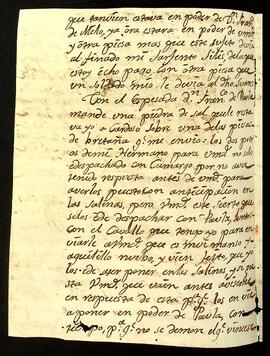 que tanvien estava en poder de Dn. Fran
de Melo, ya ora estara en poder de vmd
y otra piesa mas que este sujeto devia
al finado mi Sarjento Siles, dela que
estoy echo pago, con otra piesa que
un soldado mio le devia al dho
Con el Expesado Dn. Franco. de
mandé una piedra de sal que
va yo a Cardoso sobre una delas piesas
de bretaña qe. me envio: los dos potros
demi Hermano para vmd no los é
despachado con Camargo por no aver
tenido respuesta antes de vmd. para
averlos puesto con anticipasion en
las salinas, pero vmd. este sierto que
solos é de despachar con Paula, junto
con el Cavallo que tengo yo para en
viarle a vmd. que es mui manso, y
aquilillo nuebo, y vien fecho, que yo
los é de aser poner en las Salinas, y si gus
ta vmd. que vaian antes avise
en respuesta de esta pa. qe. los en vie
a poner en poder de Paula, con
tiempo, pa. qe. no se demore el